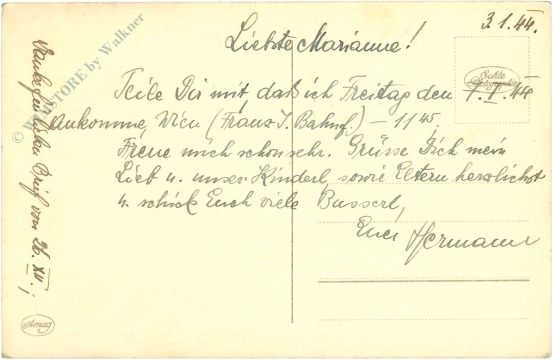 3.1.44.
Liebste Marianne!
Echte Photographie
Teile Dir mit, daß ich Freitag den 7.I.44
ankomme, Wien (Franz J. Bahnhf.) – 11 45.
Freue mich schon sehr. Grüsse Dich mein
Lieb u. unser Kinderl, sowie Eltern herzlichst
u. schick Euch viele Busserl,
Euer Hermann
Danke für lieben Brief vom 26. XII. ;
© WEBSTORE by Walkner
Amag